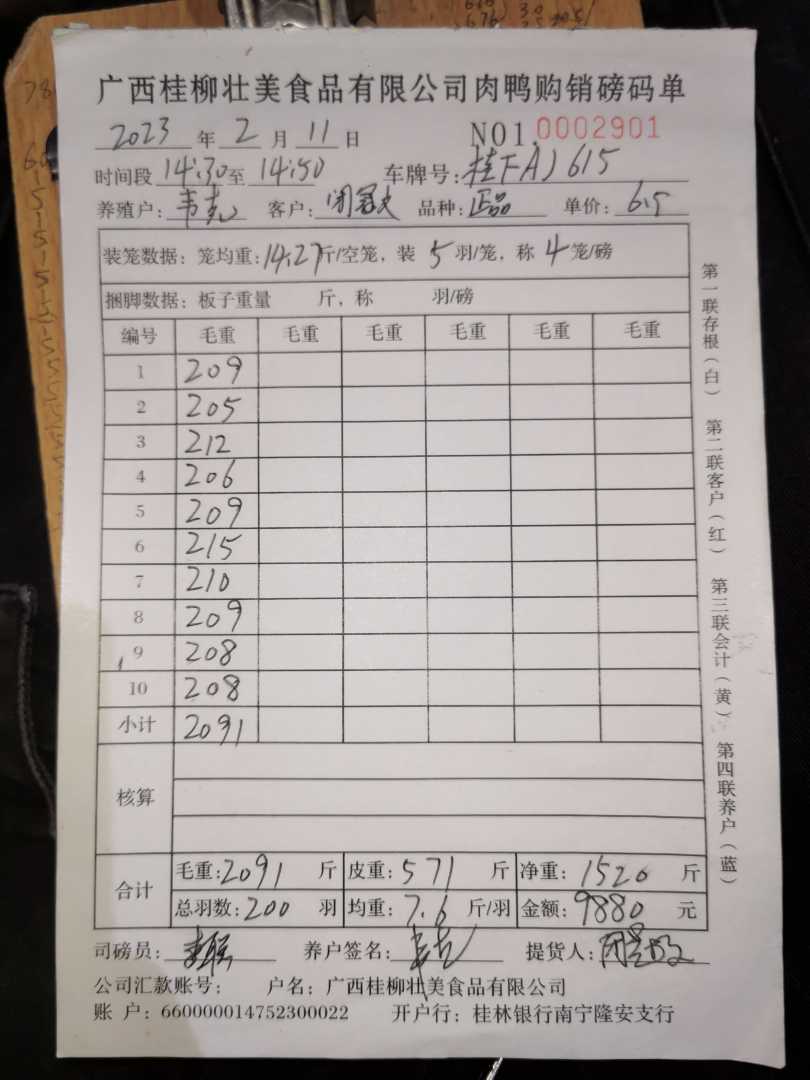 广西桂柳壮美食品有限公司肉鸭购销磅码单
2023 年 2 月 11 日 NO1.0002901
时间段 14:30 至 14:50 车牌号: 桂FAJ615
养殖户: 韦克 客户: 闭 品种: 正品 单价: 6.5
装笼数据: 笼均重: 14.27斤/空笼, 装 5 羽/笼, 称 4 笼/磅
捆脚数据: 板子重量 斤, 称 羽/磅
编号 毛重 毛重 毛重 毛重 毛重 毛重
1 209
2 205
3 212
4 206
5 209
6 215
7 210
8 209
9 208
10 208
小计 2091
核算
合计 毛重: 2091 斤 皮重: 571 斤 净重: 1520 斤
总羽数: 200 羽 均重: 7.6 斤/羽 金额: 9880 元
司磅员: 养户签名: 韦克 提货人: 闭
公司汇款账号: 户名: 广西桂柳壮美食品有限公司
账 户: 660000014752300022 开户行: 桂林银行南宁隆安支行
第一联存根(白) 第二联客户(红) 第三联会计(黄) 第四联养户(蓝)